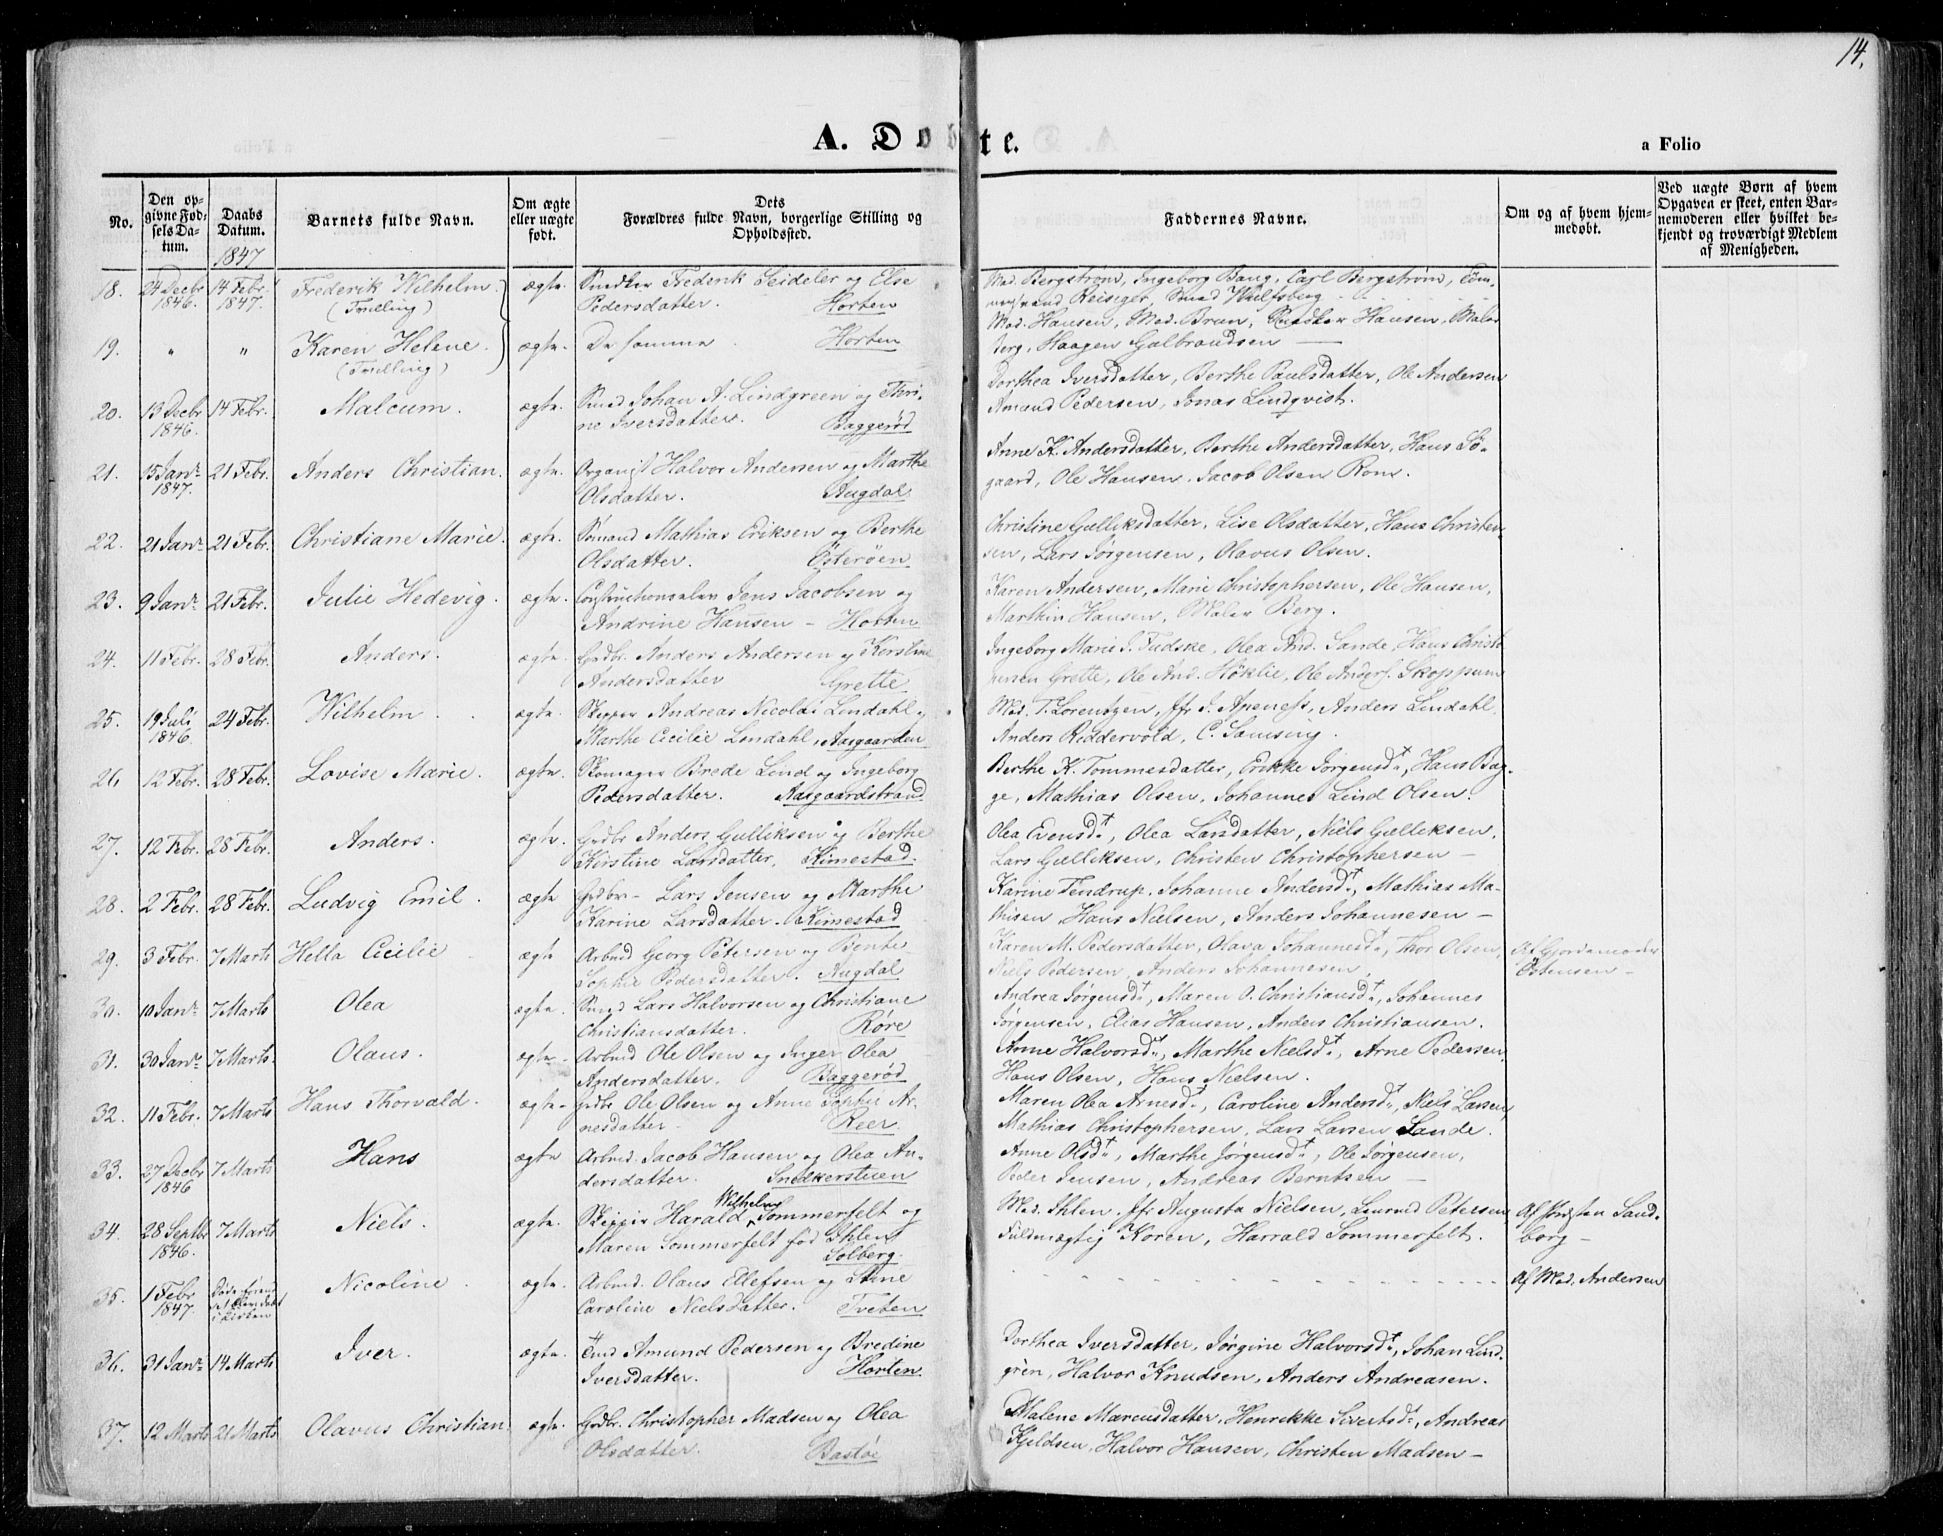 14.
A. Døbte.
a Folio
No.
Den op-
givne Fød-
sels Da-
tum.
Daabs
Datum.
1847
Barnets fulde Navn.
Om ægte
eller uægte
født.
Dets
Forældres fulde Navn, borgerlige Stilling og
Opholdssted.
Faddernes Navne.
Om og af hvem hjem-
medøbt.
Ved uægte Børn af hvem
Opgaven er skeet, enten Bar-
nemoderen eller hvilket be-
kjendt og troværdigt Medlem
af Menigheden.
18. 24 Decbr 14 Febr. Frederik Wilhelm. ægte. Snedker Frederik Seideler og Else Mad. Bergstrøm, Ingeborg Bang, Carl Bergstrøm, Tøm-
1846. 1847. (Tvilling) Pedersdatter. Horten mermand Reisiger, Smed Wulfsberg
19. " " Karen Helene. ægte. De samme. Horten Mad. Hansen, Mad. Brun, Snedker Hansen, Maler
(Tvilling) Berg, Haagen Gulbrandsen
20. 13 Decbr 14 Febr. Malcum. ægte. Smed Johan A. Lindgreen og Thri- Dorthea Iversdatter, Berthe Paulsdatter, Ole Andersen
1846. ne Iversdatter. Baggerød Amund Pedersen, Jonas Lindqvist.
21. 15 Janr. 21 Febr. Anders Christian. ægte. Organist Halvor Andersen og Marthe Anne K. Andersdatter, Berthe Andersdatter, Hans Sø-
1847. Olsdatter. Augdal gaard, Ole Hansen, Jacob Olsen Rom.
22. 21 Janr. 21 Febr. Christiane Marie. ægte. Sømand Mathias Eriksen og Berthe Christine Gulliksdatter, Lise Olsdatter, Hans Christen-
Olsdatter. Østerøen sen, Lars Jørgensen, Olavus Olsen.
23. 9 Janr. 21 Febr. Julie Hedevig. ægte. Constructionselev Jens Jacobsen og Karen Andersen, Marie Christophersen, Ole Hansen,
Andrine Hansen - Horten Marthin Hansen, Maler Berg.
24. 11 Febr. 28 Febr. Anders. ægte. Grdbr. Anders Andersen og Kirstine Ingeborg Marie J. Fudske, Olea And. Sande, Hans Christ-
Andersdatter Grette ensen Grette, Ole And. Høklie, Ole Anders. Skoppum
25. 19 Juli 24 Febr. Wilhelm. ægte. Skipper Andreas Nicolai Lindahl og Mad. T. Lorentzen, Jfr J. Apeness, Anders Lindahl.
1846. Marthe Cicilie Lindahl, Aasgaarden Anders Riddervold, C. Samsing.
26. 12 Febr. 28 Febr. Lovise Marie. ægte. Skomager Brede Lind og Ingeborg Berthe K. Tommesdatter, Erikke Jørgensd., Hans Bag-
Pedersdatter. Aasgaardstrand ge, Mathias Olsen, Johannes Lind Olsen.
27. 12 Febr. 28 Febr. Anders. ægte. Grdbr Anders Gulliksen og Berthe Olea Evensd., Olea Larsdatter, Niels Gulliksen,
Kirstine Larsdatter, Kimestad. Lars Gulliksen, Christen Christophersen -
28. 2 Febr. 28 Febr. Ludvig Emil. ægte Grdbr - Lars Jensen og Marthe Karine Tendrup, Johanne Andersd., Mathias Ma-
Karine Larsdatter. Kimestad thisen, Hans Nielsen, Anders Johannesen -
29. 3 Febr. 7 Marts Hella Cicilie ægte Arbmd Georg Petersen og Bente Karen M. Pedersdatter, Olava Johannesd., Thor Olsen, Af Gjordemoder
Sophie Pedersdatter. Augdal Niels Pedersen, Anders Johannesen. Ostensen -
30. 10 Janr. 7 Marts Olea ægte. Smed Lars Halvorsen og Christiane Andrea Jørgensd., Maren O. Christiansd., Johannes
Christiansdatter. Røre Jørgensen, Elias Hansen, Anders Christiansen.
31. 30 Janr. 7 Marts. Olaus. ægte. Arbmd Ole Olsen og Inger Olea Anne Halvorsd., Marthe Nielsd., Arne Pedersen,
Andersdatter. Baggerød Hans Olsen, Hans Nielsen.
32. 11 Febr. 7 Marts Hans Thorvald. ægte. Grdbr Ole Olsen og Anne Sophie Ar- Maren Olea Arnesd., Caroline Andersd., Niels Larsen,
nesdatter. Reer. Mathias Christophersen, Lars Larsen Sande.
33. 27 Decbr 7 Marts Hans ægte Arbmd. Jacob Hansen og Olea An- Anne Olsd., Marthe Jørgensd., Ole Jørgensen,
1846 dersdatter. Snedkerstuen Peder Jensen, Andreas Berntsen -
34. 28 Septbr 7 Marts Niels. ægte. Skipper Harald Wilhelm Sommerfelt og Mad. Ihlen, Jfr Augusta Nielsen, Petersen, Af Præsten Sand-
1846. Maren Sommerfelt fød Ihlen Solberg. Fuldmægtig Koren, Harrald Sommerfelt. borg -
35. 1 Febr 1847. Døde førend det blev døbt i Kirken Nicoline. ægte. Arbmd. Olaus Ellefsen og Stine Af Mad. Andersen
Caroline Nielsdatter. Tveten
36. 31 Janr. 14 Marts Iver. ægte. Amund Pedersen og Bredine Dorthea Iversdatter, Jørgine Halvorsd., Johan Lind-
Iversdatter. Horten gren, Halvor Knudsen, Anders Andreasen.
37. 12 Marts 21 Marts Olavus Christian. ægte. Grdbr. Christopher Madsen og Olea Malene Marcusdatter, Henrikke Sivertsd., Andreas
Olsdatter. Bastøe Kjeldsen, Halvor Hansen, Christen Madsen -